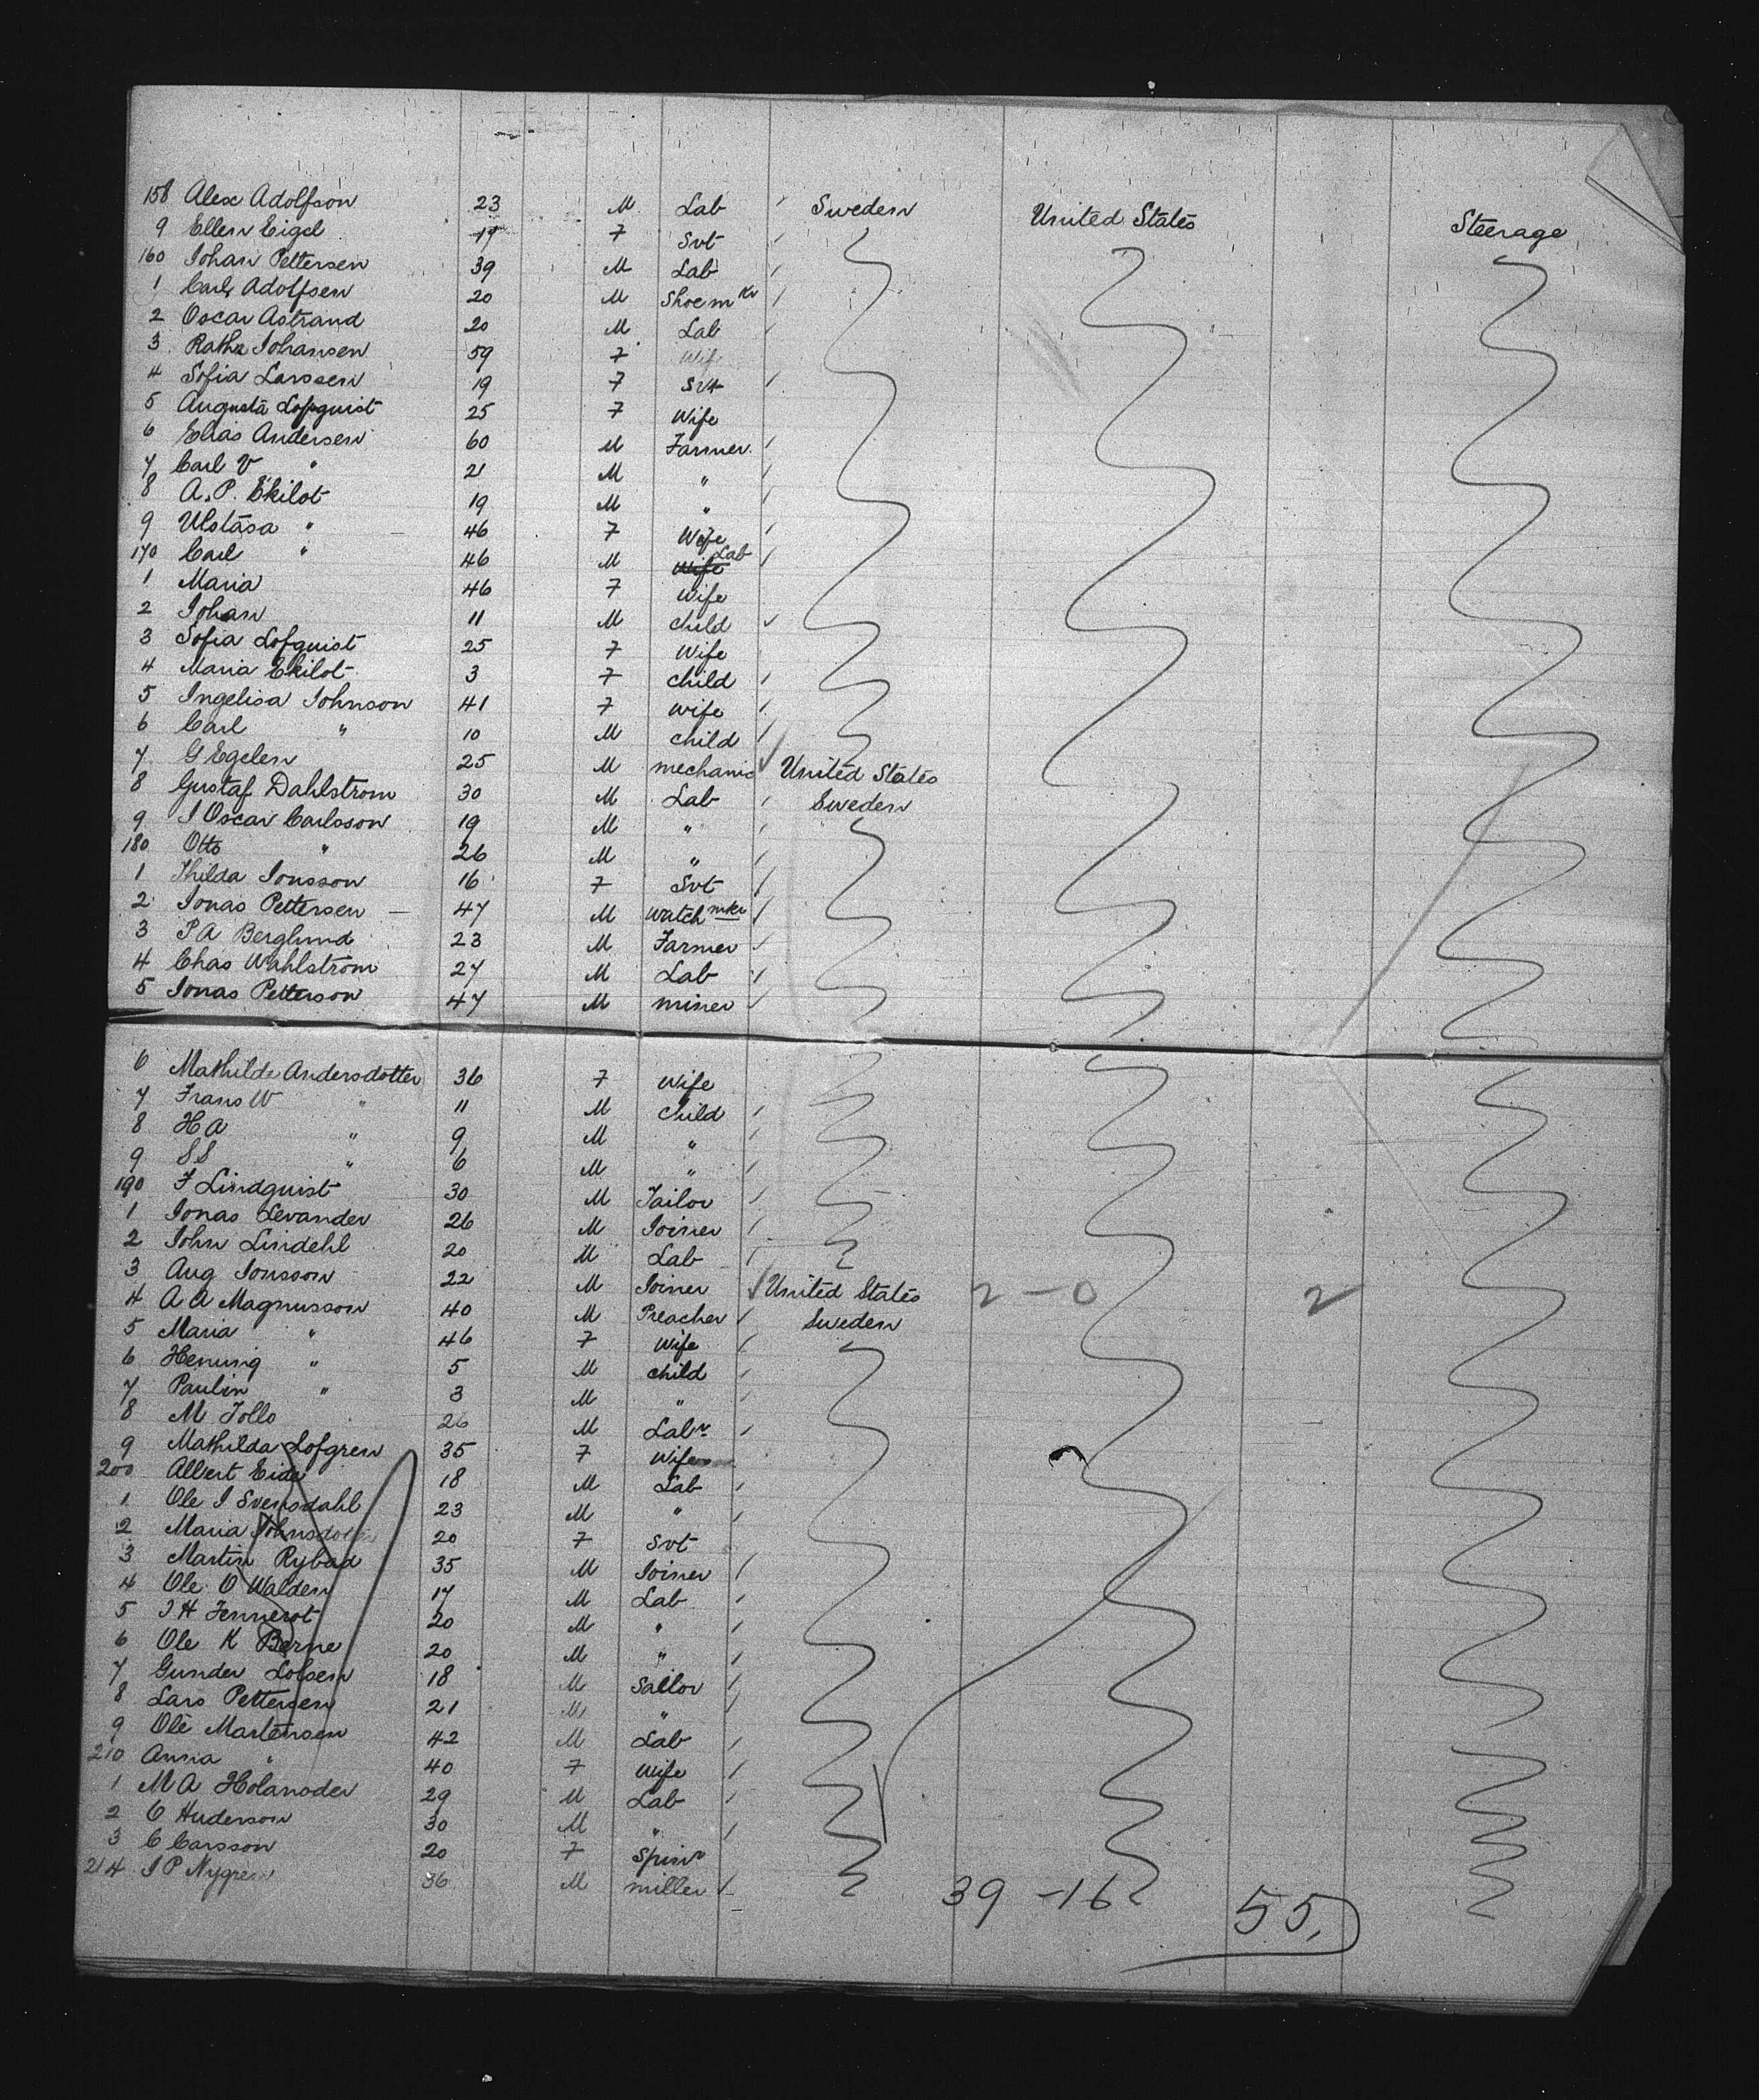 158 Alex Adolfson 23 M Lab Sweden United States Steerage
9 Ellen Eigel 19 F Svt
160 Johan Pettersen 39 M Lab
1 Carl Adolfsen 20 M Shoem kr
2 Oscar Astrand 20 M Lab
3 Johansen 59 F Wife
4 Sofia Larssen 19 F Svt
5 Augusta Lofquist 25 F Wife
6 Elias Andersen 60 M Farmer
7 Carl V " 21 M "
8 A. P. Ekilot 19 M "
9 Ulstasa " 46 F Wife
170 Carl " 46 M Wife Lab
1 Maria 46 F Wife
2 Johan 11 M child
3 Sofia Lofquist 25 F Wife
4 Maria Ekilot 3 F child
5 Ingelisa Johnson 41 F wife
6 Carl " 10 M child
7 G Egelen 25 M mechanic United States
8 Gustaf Dahlstrom 30 M Lab Sweden
9 J Oscar Carlsson 19 M "
180 Otto " 26 M "
1 Thilda Jonsson 16 F Svt
2 Jonas Pettersen 47 M Watch mkr
3 P A Berglund 23 M Farmer
4 Chas Wahlstrom 27 M Lab
5 Jonas Petterson 47 M miner
6 Mathilde Andersdotter 36 F Wife
7 Frans W " 11 M child
8 H A " 9 M "
9 S S " 6 M "
190 F Lindquist 30 M Tailor
1 Jonas Levander 26 M Joiner
2 John Lindehl 20 M Lab
3 Aug Jonsson 22 M Joiner United States 2 - 0 2
4 A A Magnusson 40 M Preacher Sweden
5 Maria " 46 F Wife
6 Henning " 5 M child
7 Paulin " 3 M "
8 M Tollo 26 M Labr
9 Mathilda Lofgren 35 F Wife
200 Albert Eide 18 M Lab
1 Ole J Svensdahl 23 M "
2 Maria 20 F Svt
3 Martin Rybad 35 M Joiner
4 Ole O Walden 17 M Lab
5 J H Jennerot 20 M "
6 Ole K Berne 20 M "
7 Gunder Lolsen 18 M Sailor
8 Lars Pettersen 21 M "
9 Ole Martensen 42 M Lab
210 Anna " 40 F Wife
1 M A Holanoder 29 M Lab
2 C Anderson 30 M "
3 C Carsson 20 F Spinr
214 J P Nygren 36 M miller
39 - 16 55